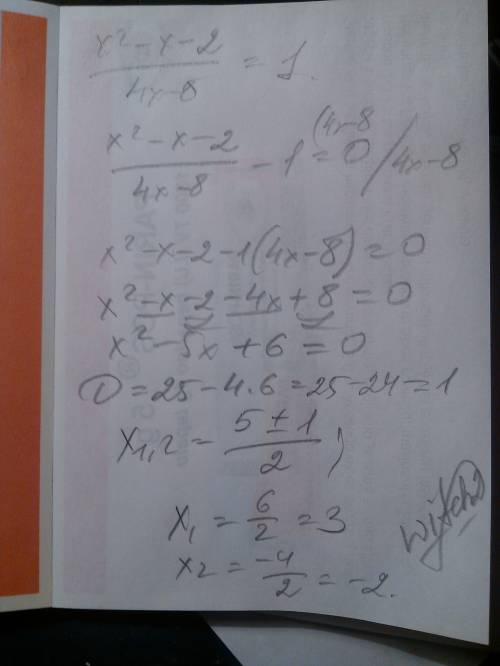 x² - x - 2 / 4x - 8 = 1.
x² - x - 2 / 4x - 8 - 1 = 0 (4x-8 / 4x-8
x² - x - 2 - 1(4x - 8) = 0
x² - x - 2 - 4x + 8 = 0
x² - 5x + 6 = 0
D = 25 - 4·6 = 25 - 24 = 1
x₁,₂ = 5 ± 1 / 2 ;
x₁ = 6/2 = 3
x₂ = -4/2 = -2.